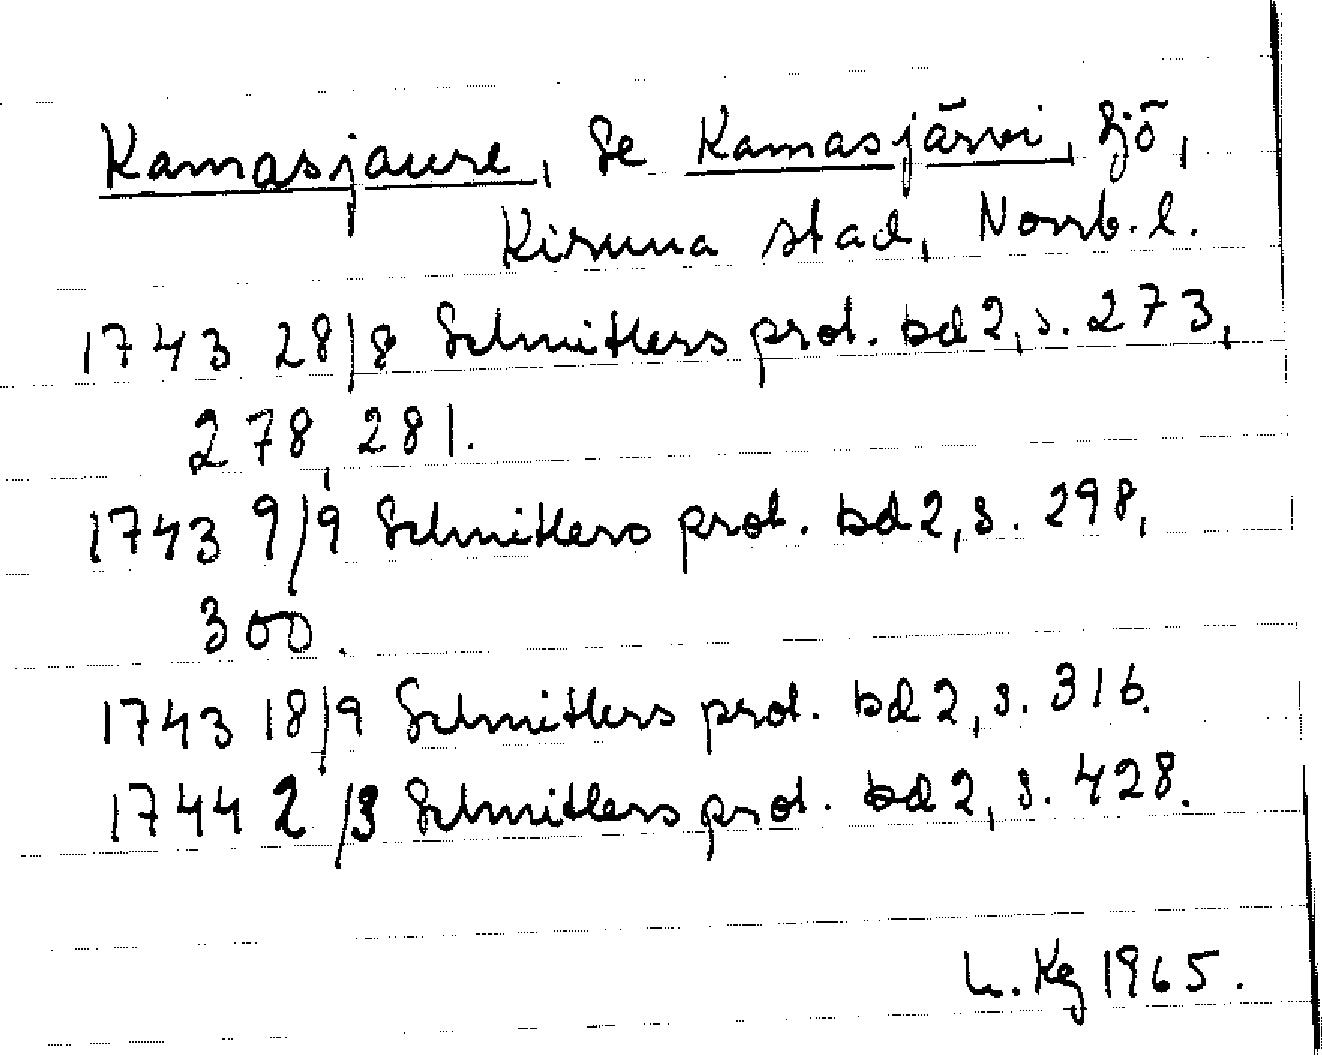 Kamasjaure, Se Kamasjärvi, Sjö,
Kiruna stad, Norrb. l.
1743 28/8 Schnitlers prot. bd 2, s. 273,
278, 281.
1743 9/9 Schnitlers prot. bd 2, s. 298,
300.
1743 18/9 Schnitlers prot. bd 2, s. 316.
1744 2/3 Schnitlers prot. bd 2, s. 428.
L. Kg 1965.